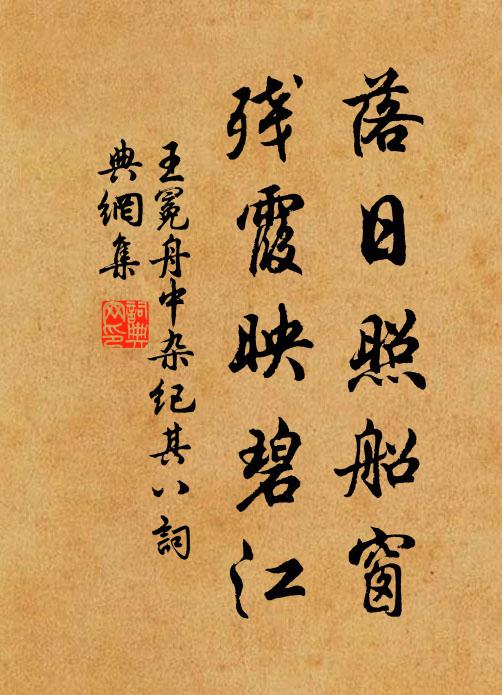 落日照船窗
残霞映碧江
王冕舟中杂纪其八詞
典網集
詞典
网印